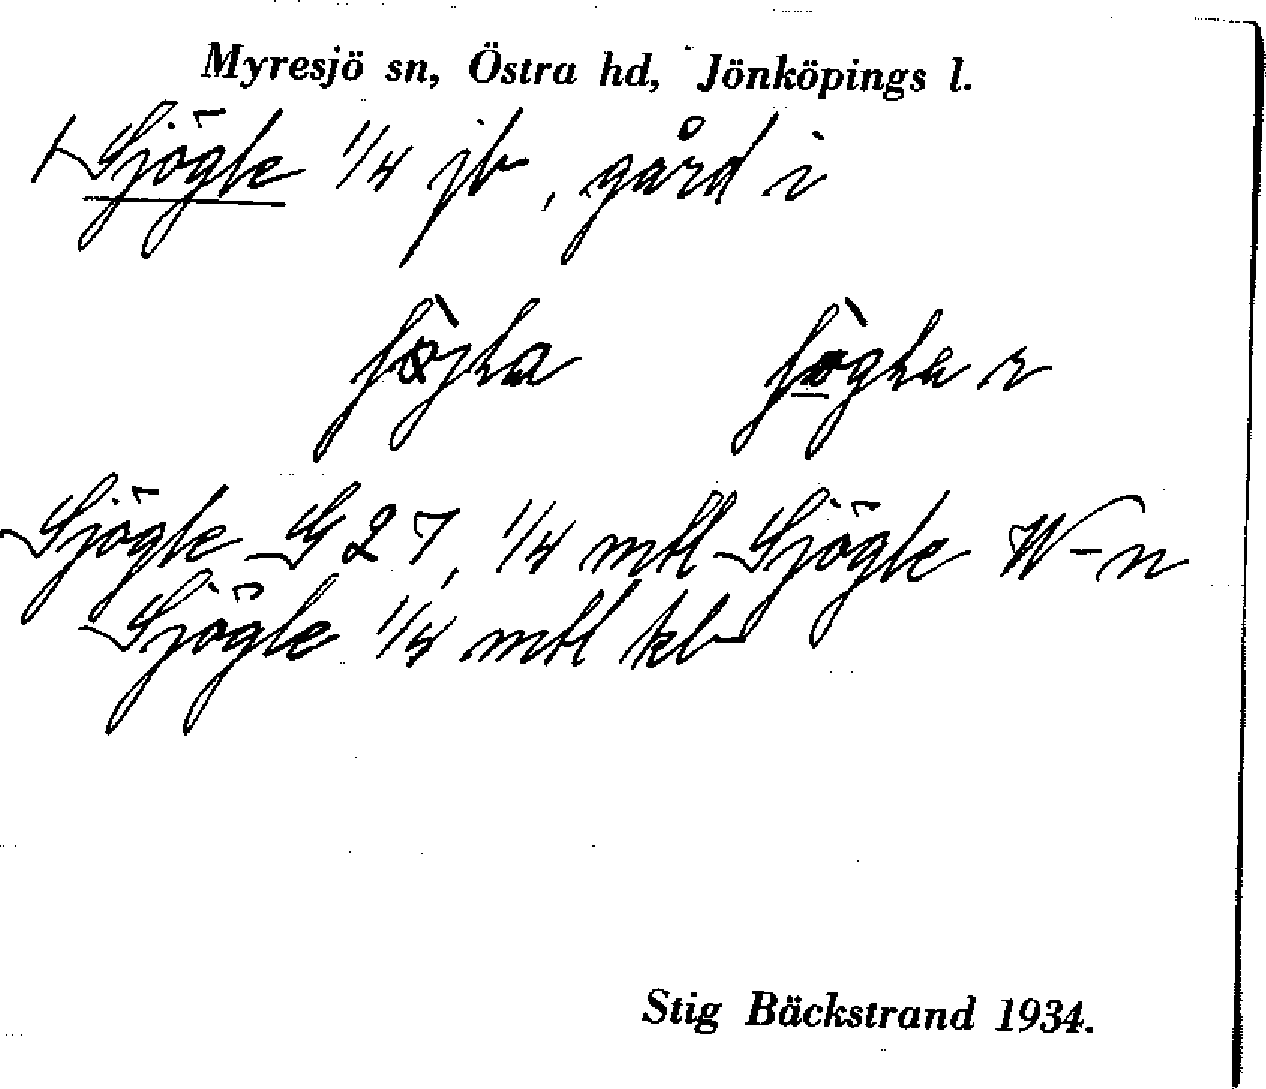 Myresjö sn, Östra hd, Jönköpings l.
Sjögle 1/4 jb, gård i
Sjögle G 27, 1/4 mtl Sjögle W-n
Sjögle 1/4 mtl kb
Stig Bäckstrand 1934.